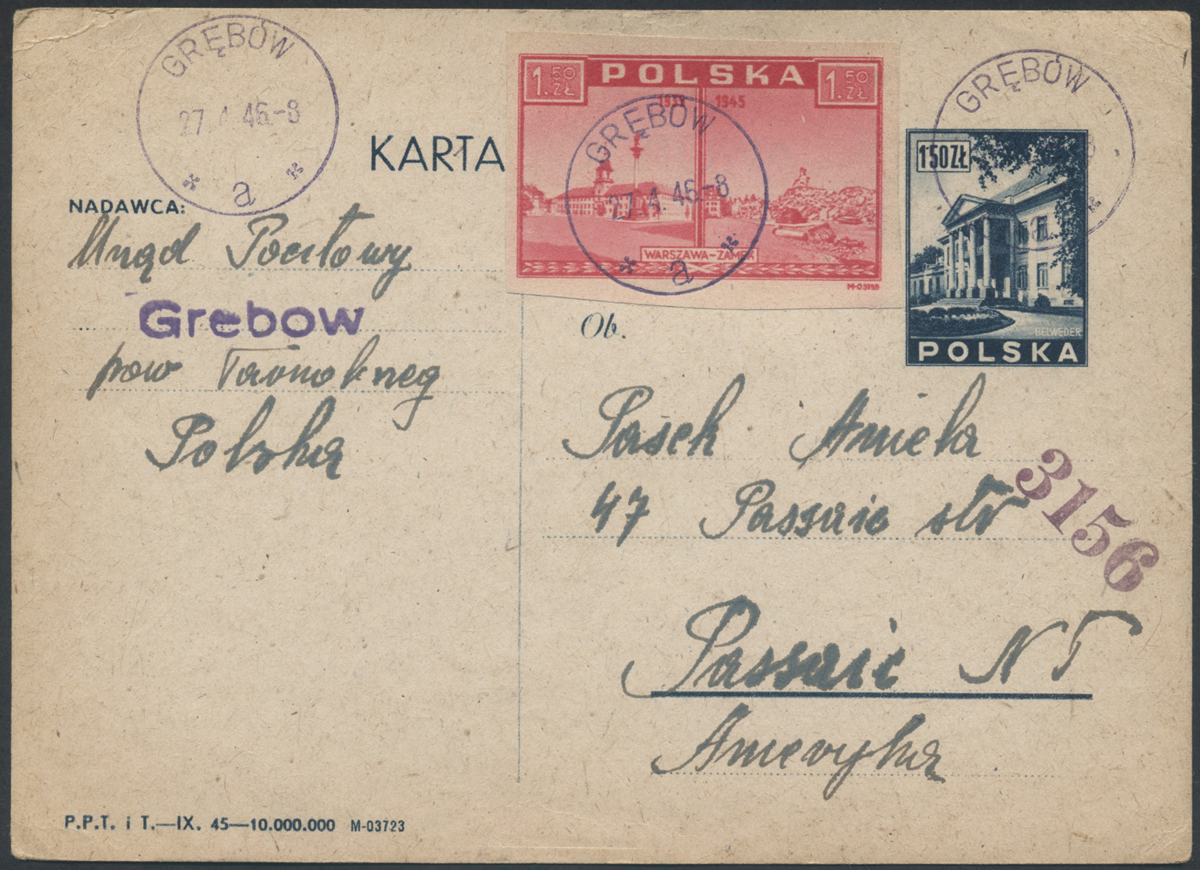 GRĘBÓW
27.4.46.-8
* a *
KARTA
1.50 ZŁ POLSKA 1.50 ZŁ
1939 1945
WARSZAWA-ZAMEK
M-03188
GRĘBÓW
27.4.46.-8
* a *
GRĘBÓW
150 ZŁ
BELWEDER
POLSKA
NADAWCA:
Urząd Pocztowy
Grebow
pow Tarnobrzeg
Polska
Ob.
Pasek Aniela
47 Passaic str
3156
Passaic NJ
Ameryka
P.P.T. i T.—IX. 45—10.000.000 M-03723